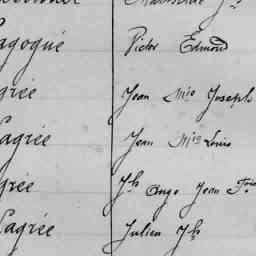 agogué Victor Edmond
grée Jean Mie Joseph
agrée Jean Mie Louis
grée Jh Ange Jean
agrée Julien Jh